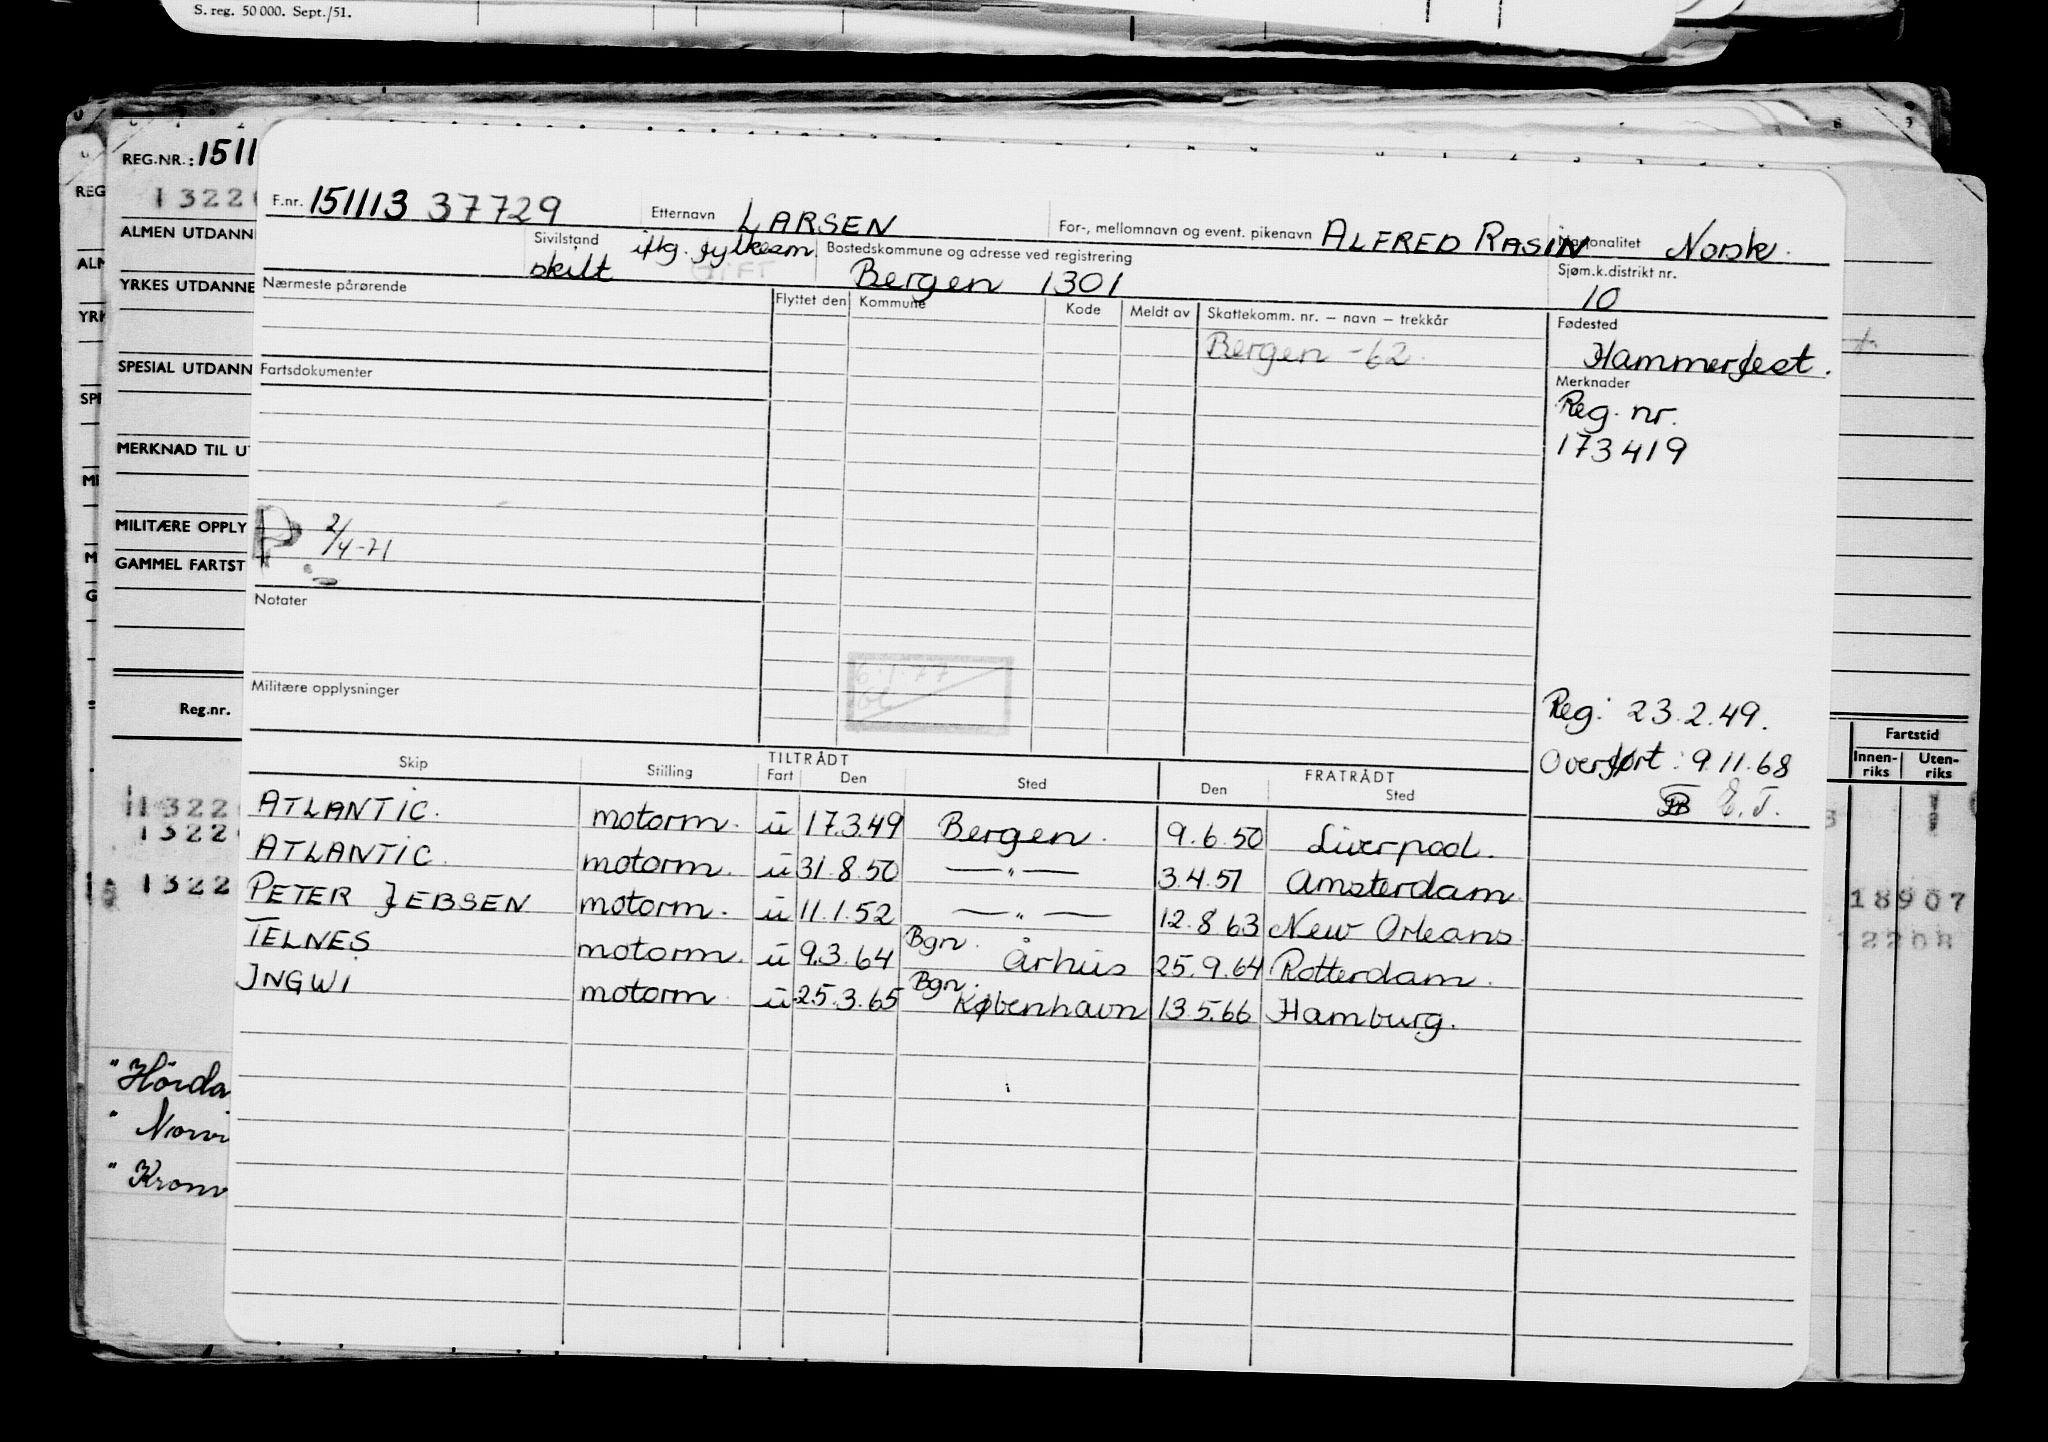 S. reg. 50 000. Sept./51.
REG.NR.: 1511
1322
REG
ALMEN UTDANN
ALM
YRKES UTDANNE
YRK
SPESIAL UTDANN
SPE
MERKNAD TIL U
ME
MILITÆRE OPPLY
M
GAMMEL FARTST
G
Reg.nr.
1322
1322
1322
"Hörda
" Norvi
" Kronv
F.nr. 151113 37729 Etternavn LARSEN For-, mellomnavn og event. pikenavn ALFRED RASIN Nasjonalitet Norsk.
Sivilstand skilt iflg. fylkesm. GIFT Bostedskommune og adresse ved registrering Bergen 1301 Sjøm.k.distrikt nr. 10
Nærmeste pårørende Flyttet den Kommune Kode Meldt av Skattekomm. nr. – navn – trekkår Fødested
Bergen -62. Hammerfest.
Fartsdokumenter Merknader
Reg. nr.
173419
P 2/4-71
Notater
6.1.77
Militære opplysninger
Reg: 23.2.49.
Overført: 9.11.68
E.T.
Skip Stilling TILTRÅDT Fart Den Sted FRATRÅDT Den Sted
ATLANTIC. motorm. u 17.3.49 Bergen. 9.6.50 Liverpool.
ATLANTIC. motorm. u 31.8.50 —"— 3.4.51 Amsterdam
PETER JEBSEN motorm. u 11.1.52 —"— 12.8.63 New Orleans.
TELNES motorm. u 9.3.64 Bgn. Århus 25.9.64 Rotterdam.
INGWI motorm. u 25.3.65 Bgn. København 13.5.66 Hamburg.
Fartstid
Innen-riks Uten-riks
18907
12208